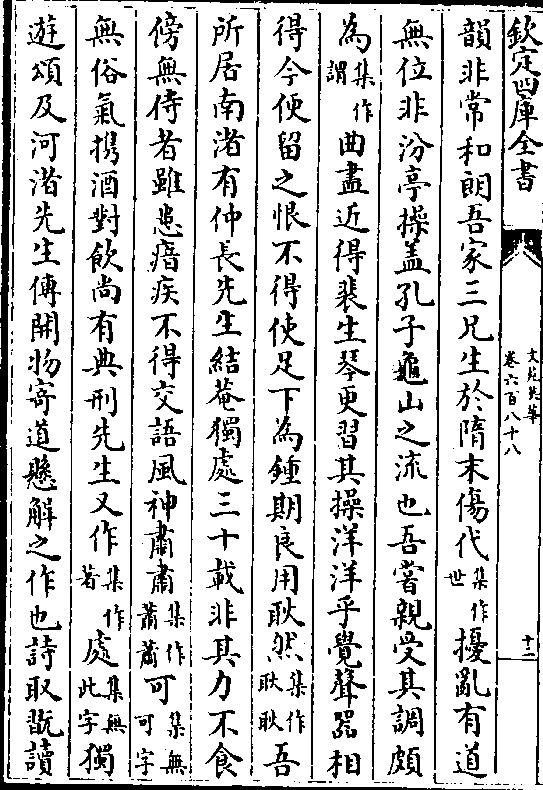 欽定四庫全書
文苑英華
卷六百八十八
十二
韻非常和朗吾家三兄生於隋末傷代集作世擾亂有道
無位非汾亭操盖孔子龜山之流也吾嘗親受其調頗
為集作謂曲盡近得裴生琴更習其操洋洋乎覺聲器相
得今便留之恨不得使足下為鍾期良用耿然集作耿耿吾
所居南渚有仲長先生結菴獨處三十載非其力不食
傍無侍者雖患瘖疾不得交語風神肅肅集作蕭蕭可集無可字
無俗氣携酒對飲尚有典刑先生又作集作著處集無此字獨
遊頌及河渚先生傳開物寄道懸解之作也詩取翫讀